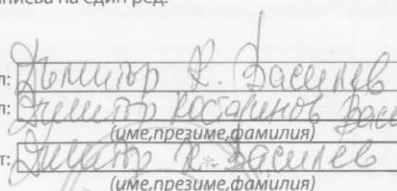 на един ред.
л: Димитър К. Василев
л: Димитър Костадинов
(име,презиме,фамилия)
т: Димитър К. Василев
(име,презиме,фамилия)